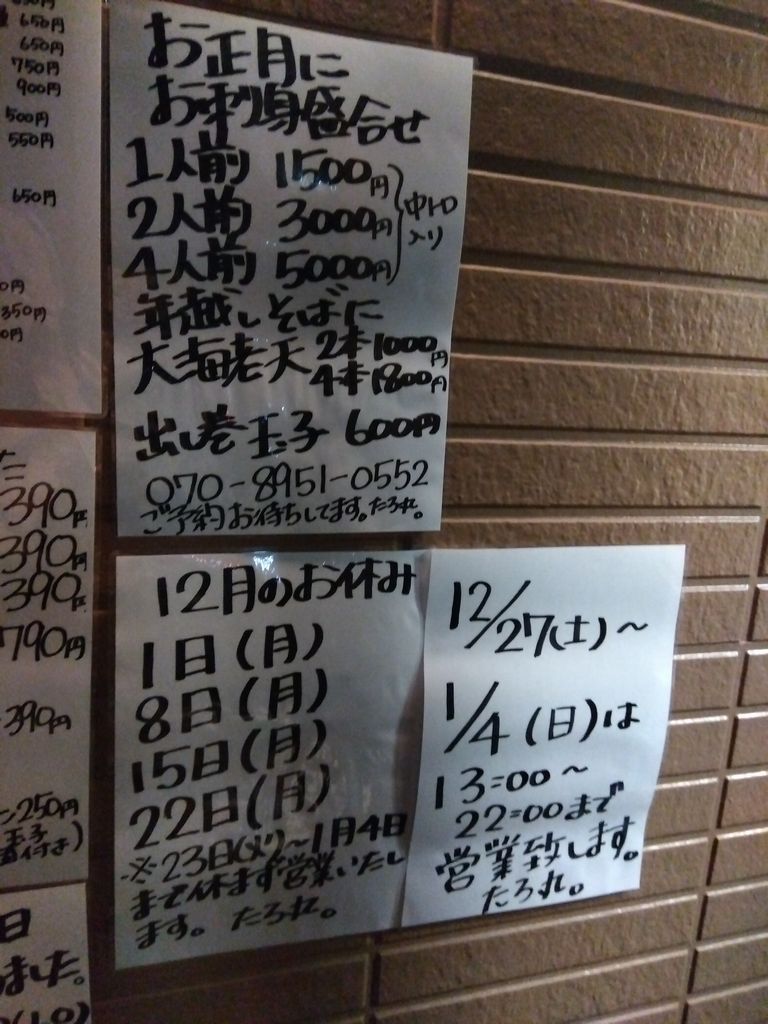 650円
650円
750円
900円
500円
550円
650円
350円
お正月に
お刺身盛合せ
1人前 1500円
2人前 3000円
4人前 5000円
中トロ
入り
年越しそばに
大海老天 2本1000円
4本1800円
出し巻玉子 600円
070-8951-0552
ご予約お待ちしてます。たろれ。
390円
390円
390円
790円
390円
250円
玉子
付き)
12月のお休み
1日(月)
8日(月)
15日(月)
22日(月)
※23日(火)～1月4日
まで休まず営業いたし
ます。たろれ。
12/27(土)～
1/4(日)は
13:00～
22:00まで
営業致します。
たろれ。
日
ました。